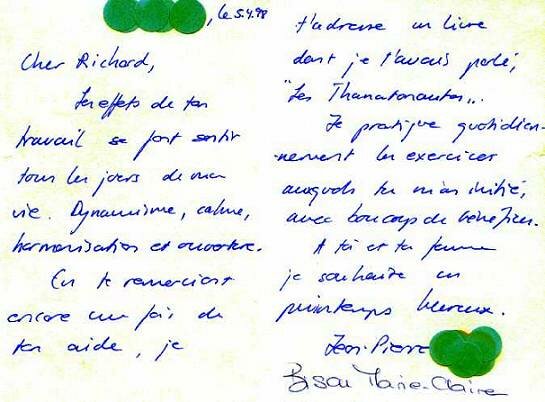 , le 5.4.98
Cher Richard,
Les effets de ton
travail se font sentir
tous les jours de ma
vie. Dynamisme, calme,
harmonisation et ouverture.
En te remerciant
encore une fois de
ton aide, je
t'adresse un livre
dont je t'avais parlé,
"Les Thanatonautes".
Je pratique quotidien-
nement les exercices
auxquels tu m'as initié,
avec beaucoup de bénéfices.
A toi et ta femme
je souhaite un
printemps heureux.
Jean-Pierre
Bisou Marie-Claire